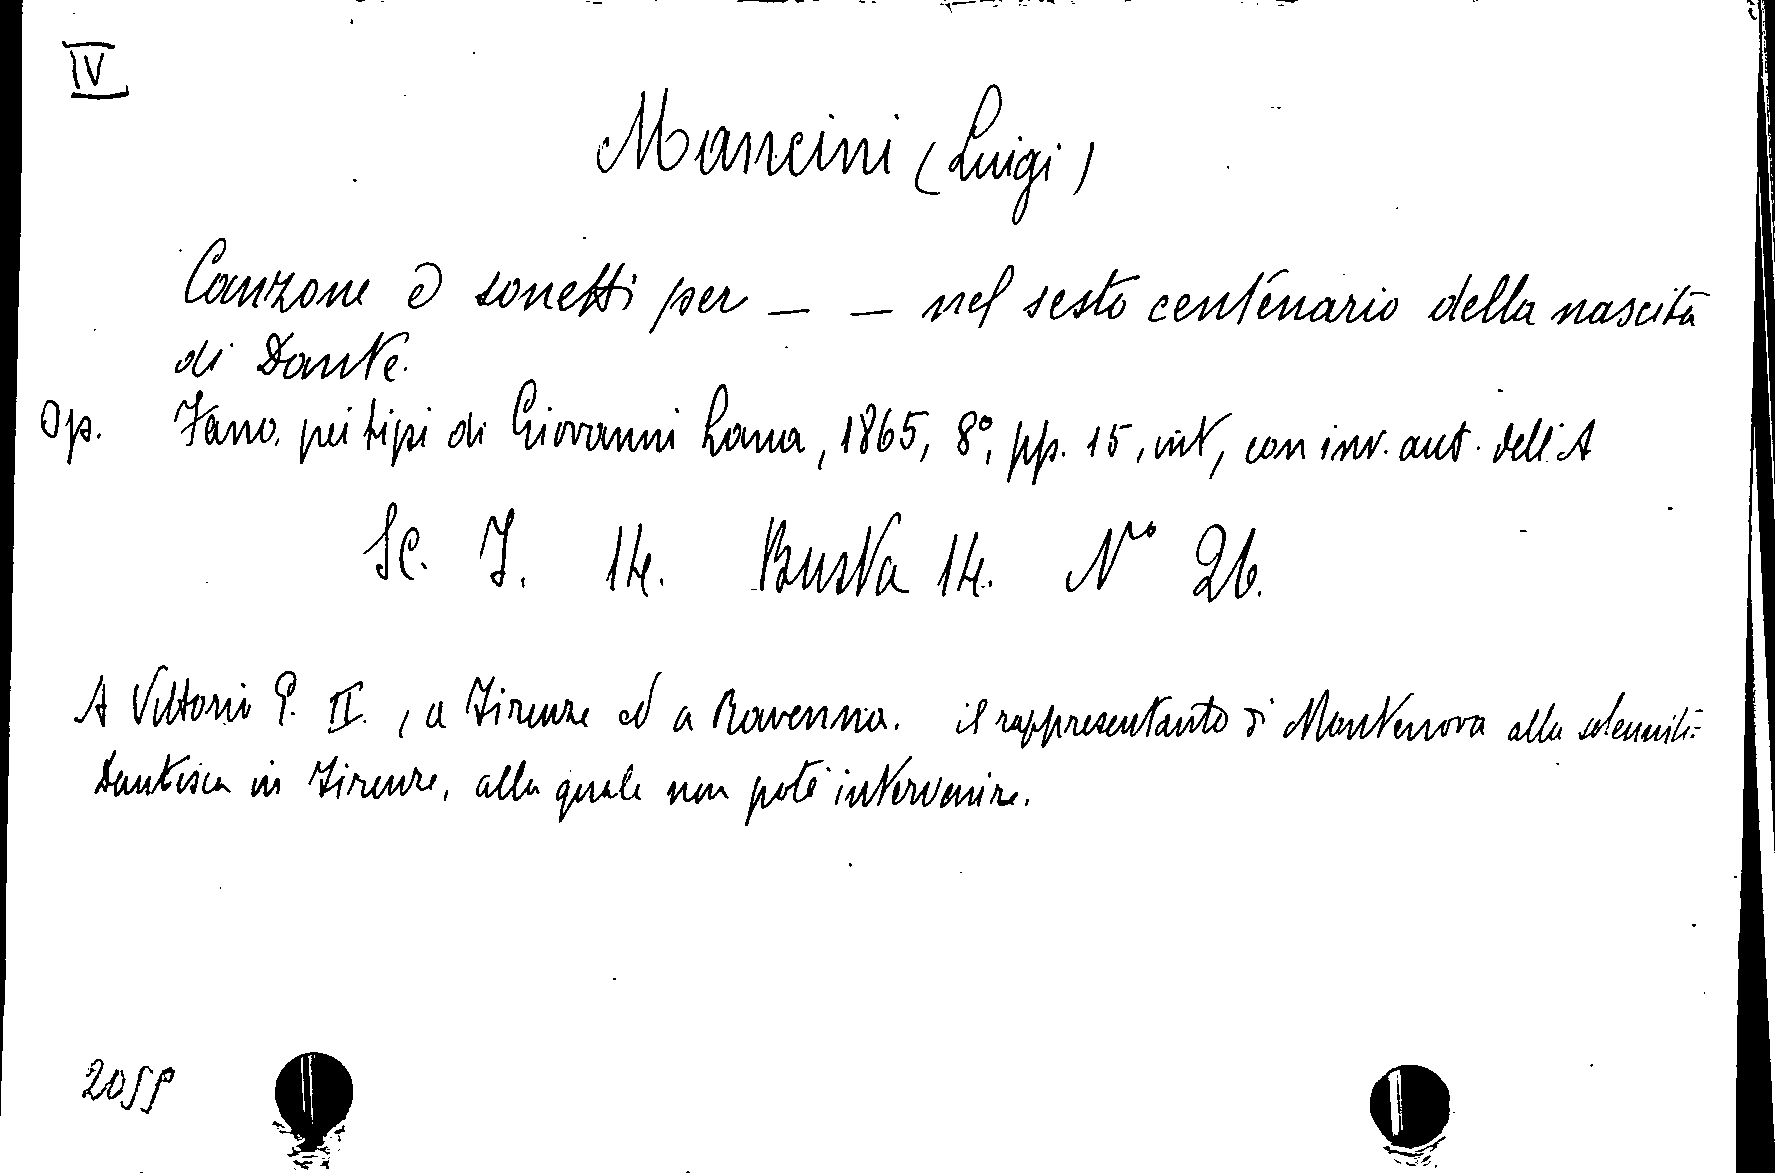 IV
Mancini (Luigi)
Canzone e sonetti per — — nel sesto centenario della nascita
di Dante.
Op. Fano, pei tipi di Giovanni Lana, 1865, 8°, pp. 15, int, con inv. aut. dell'A
Sc. I. 14. Busta 14. N° 26.
A Vittorio E. II., a Firenze ed a Ravenna. il rappresentante di Montenovo alla solennità
Dantisca in Firenze, alla quale non poté intervenire.